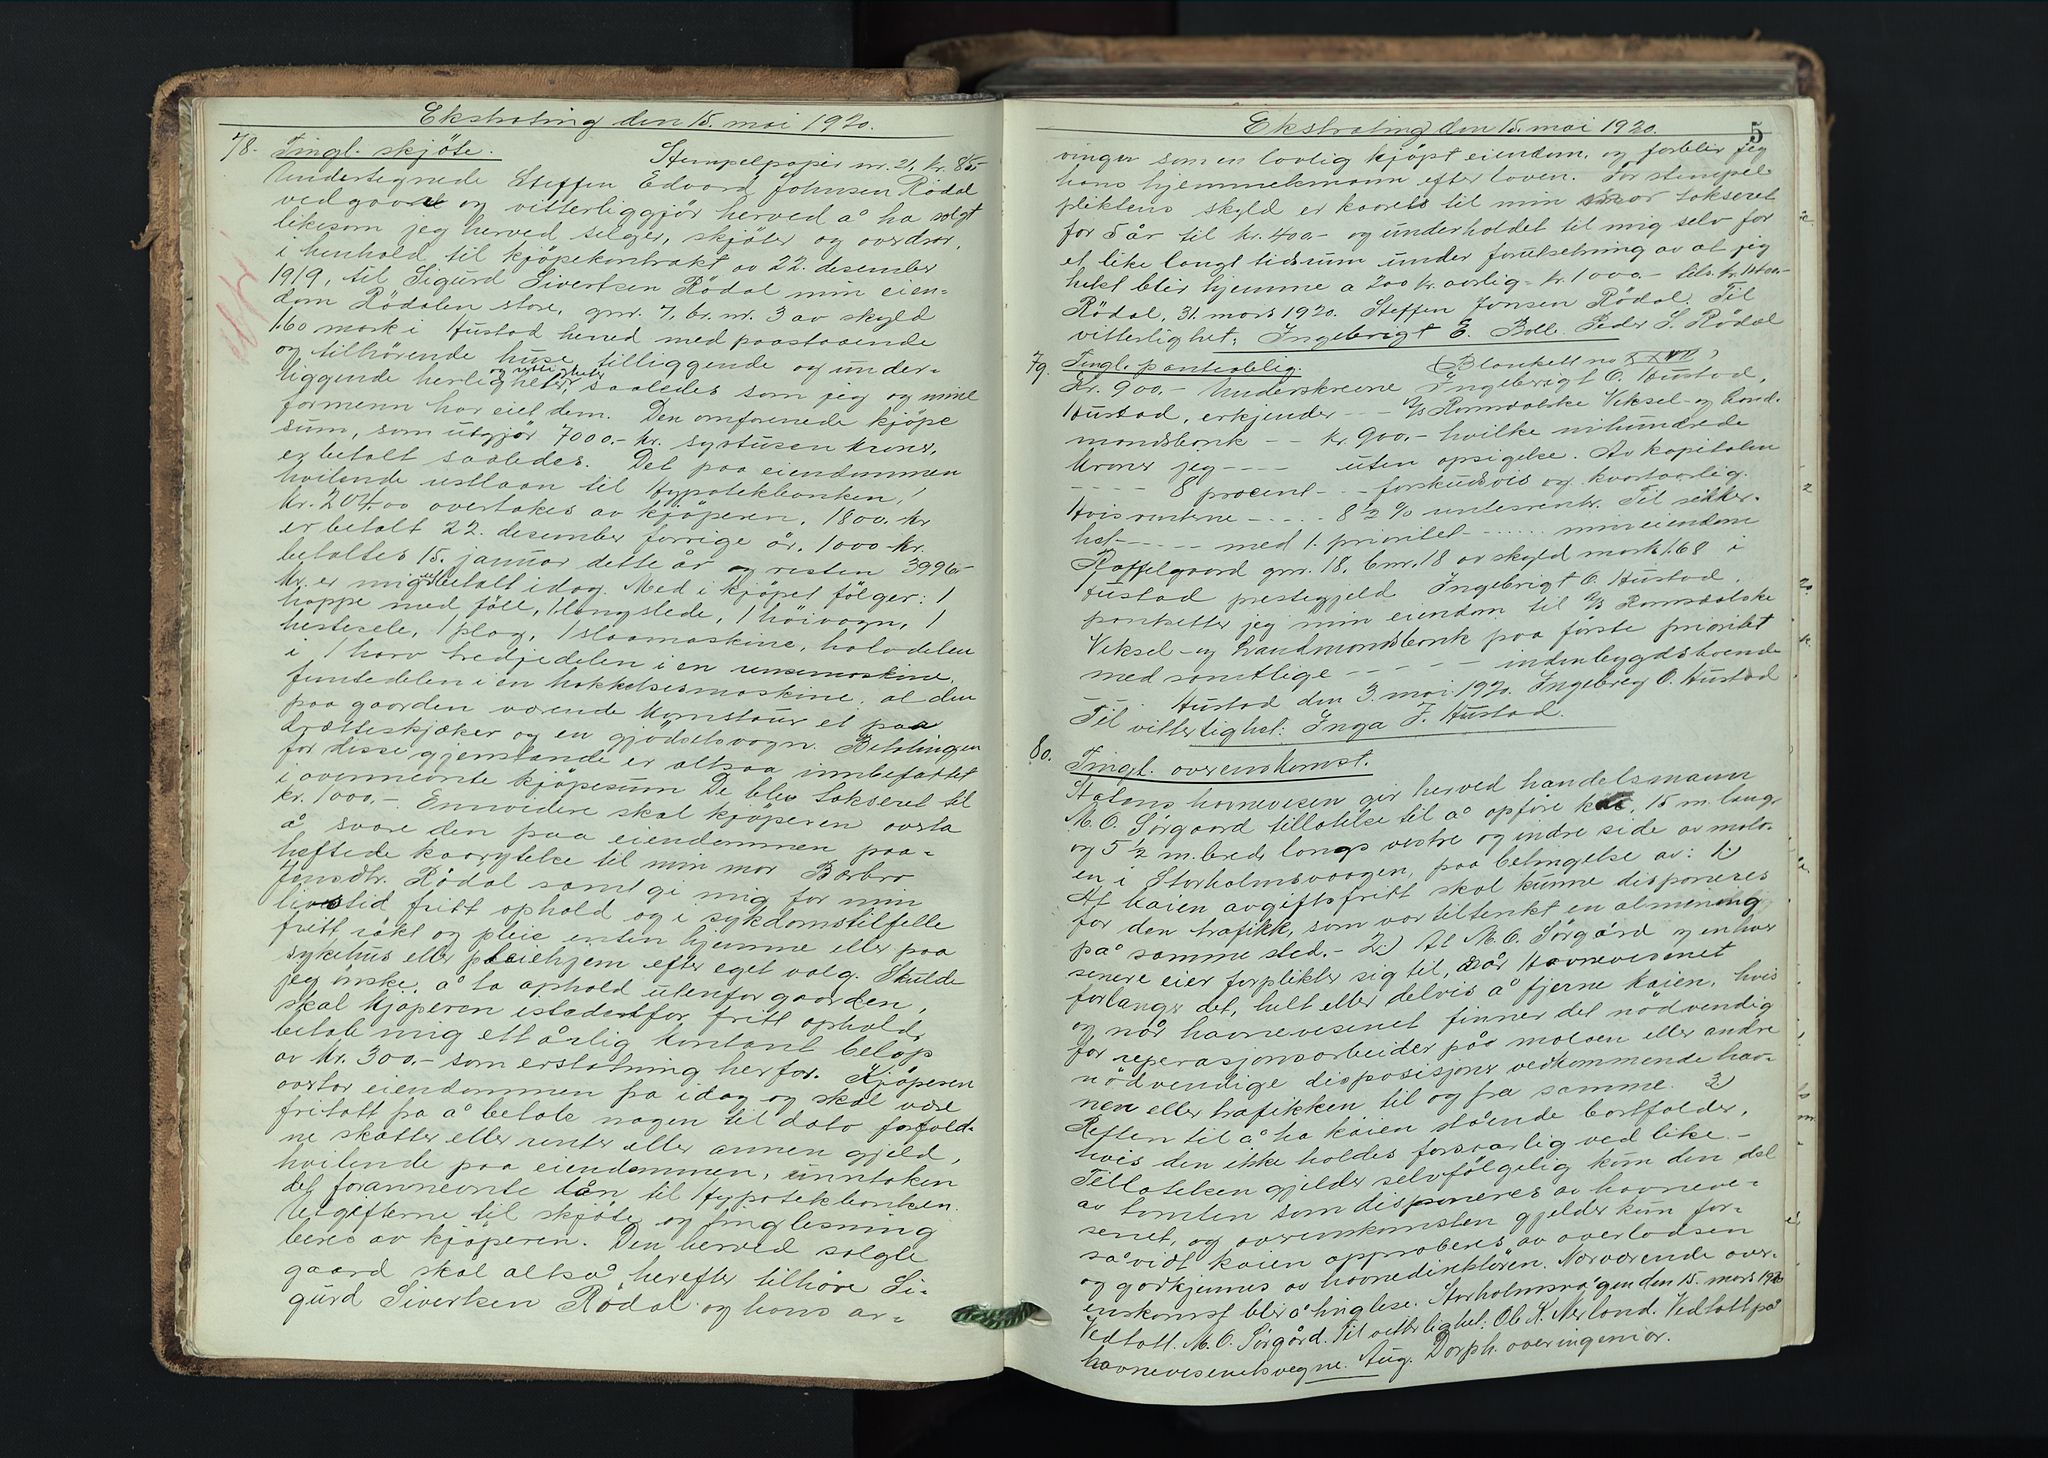 Ekstrating den 15. mai 1920.
78. Tingl. skjöte. Stempelpapir nr. 21, kr. 85.-
Undertegnede Steffen Edvard Johnsen Rödal
vedgaar og vitterliggjör herved å ha solgt
likesom jeg herved selger, skjöter og overdrar,
i henhold til kjöpekontrakt av 22. desember
1919, til Sigurd Sivertsen Rödal min eien-
dom Rödalen store, gnr. 7, br. nr. 3 av skyld
1.60 mark i Hustad herred med paastaaende
og tilhörende huse, tilliggende og under-
liggende herligheter og rettigheter, saaledes som jeg og mine
formenn har eiet dem. Den omforenede kjöpe
sum, som utgjör 7000.- kr. sytusen kroner,
er betalt saaledes. Det paa eiendommen
hvilende restlaan til Hypotekbanken,
kr. 204.00 overtakes av kjöperen. 1800.- kr
er betalt 22. desember forrige år. 1000.- kr.
betaltes 15. januar dette år og resten 3996.-
kr. er mig betalt idag. Med i kjöpet fölger: 1
hoppe med föll, 1 langslede, 1 höivogn, 1
hestesele, 1 plog, 1 slaamaskine, halvdelen
i 1 harv tredjedelen i en rensemaskine,
femtedelen i en hakkelsesmaskine, al den
paa gaarden værende kornstaur et par
drætteskjæker og en gjödselsvogn. Betalingen
for disse gjenstande er altsaa innbefattet
i ovennevnte kjöpesum De blev takseret til
kr. 1000.-. Ennvidere skal kjöperen overta
å svare den paa eiendommen paa-
heftede kaarytelse til min mor Barbro
Jonsdtr. Rödal samt gi mig for min
livstid fritt ophold og i sykdomstilfelle
fritt rökt og pleie enten hjemme eller paa
sykehus eller pleiehjem efter eget valg. Skulde
jeg önske å ta ophold utenfor gaarden,
skal kjöperen istedenfor fritt ophold
betale mig ett årlig kontant belöp
av kr. 300.- som erstatning herfor. Kjöperen
overtar eiendommen fra idag og skal være
fritatt fra å betale nogen til dato forfald-
ne skatter eller renter eller annen gjeld,
hvilende paa eiendommen, unntaken
det forannevnte lån til Hypotekbanken.
Utgifterne til skjöte og tinglesning
beres av kjöperen. Den herved solgte
gaard skal altså herefter tilhöre Si-
gurd Sivertsen Rödal og hans ar-
Ekstrating den 15. mai 1920. 5
vinger som en lovlig kjöpt eiendom, og forblir jeg
hans hjemmelsmann efter loven. For stempel
pliktens skyld er kaaret til min mor takseret
for 5 år til kr. 400.- og underholdet til mig selv for
et like langt tidsrum under forutsetning av at jeg
helst blir hjemme a 200 kr. aarlig = kr. 1000.- tils. kr. 1400.-
Rödal, 31. mars 1920. Steffen Jonsen Rödal. Til
vitterlighet: Ingebrigt E. Boll. Peder S. Rödal
79. Tingl. panteoblig. (Blankett no XXVII)
Kr. 900.- Underskrevne Ingebrigt O. Hustad,
Hustad, erkjender - - - A/s Romsdalske Veksel- og Land-
mandsbank - - kr. 900.- hvilke nihundrede
kroner jeg - - - - uten opsigelse. Av kapitalen
- - - - - 8 procent - - - forskudsvis og kvartaarlig.
Hvis renterne - - - - - 8 1/2 % undesrentr. Til sikker-
het - - - - - med 1. prioritet - - - - - min eiendom
Kaffelgaard gnr. 18, bnr. 18 av skyld mark 1.68 i
Hustad prestegjeld Ingebrigt O. Hustad.
pantsetter jeg min eiendom til A/s Romsdalske
Veksel- og Landmandsbank paa förste prioritet
med samtlige - - - - - - indenbygdsboende
Hustad den 3. mai 1920. Ingebrig O. Hustad
Til vitterlighet: Inga J. Hustad.
80. Tingl. overenskomst.
Statens havnevesen gir herved handelsmann
M. O. Sörgaard tillatelse til å opföre kai, 15 m. lang
og 5 1/2 m. bred langs vestre og indre side av molo-
en i Storholmsvaagen, paa betingelse av: 1)
At kaien avgiftsfritt skal kunne disponeres
for den trafikk, som var tiltenkt en almenning
på samme sted. - 2) At M. O. Sörgård og enhver
senere eier forplikter sig til, når Havnevesenet
forlanger det, helt eller delvis å fjerne kaien, hvis
og når havnevesenet finner det nödvendig
for reperasjonsarbeider på moloen eller andre
nödvendige disposisjoner vedkommende hav-
nen eller trafikken til og fra samme. 3)
Retten til å ha kaien stående bortfalder,
hvis den ikke holdes forsvarlig ved like. -
Tillatelsen gjelder selvfölgelig kun den del
av tomten som disponeres av havneve-
senet, og overenskomsten gjelder kun for-
såvidt kaien approberes av overlodsen
og godkjennes av havnedirektören. Nærværende over-
enskomst blir å tinglese. Storholmsvågen den 15. mars 1920
Vedtatt. M. O. Sörgård. Til vitterlighet: Ole K. Nerland. Vedtatt på
havnevesenets vegne. Aug. Dorph. overingeniör.